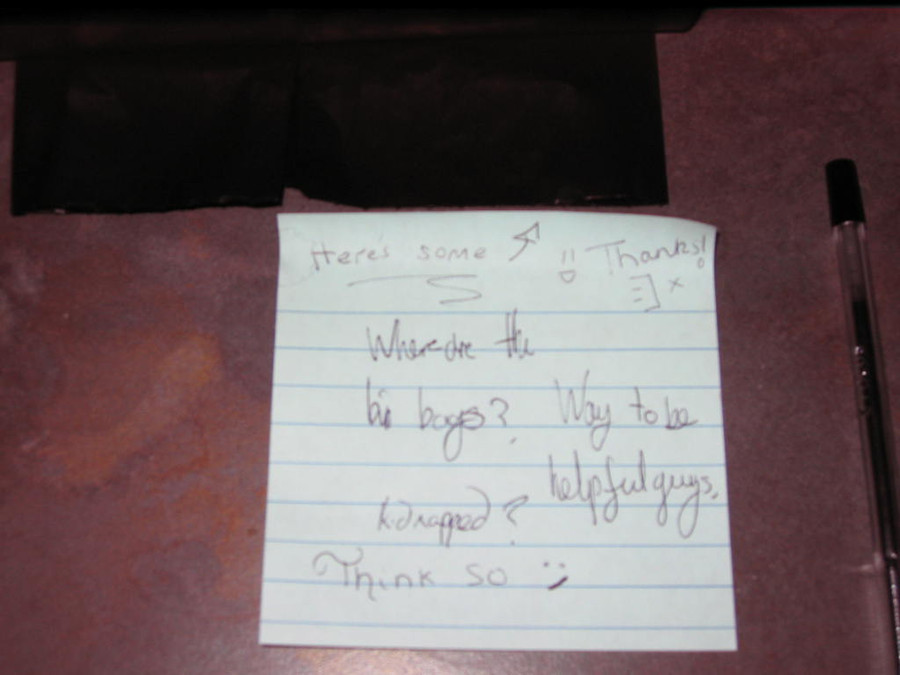 Here's some
:) Thanks!
=] x
Where are the
bin bags?
Way to be
helpful guys.
kidnapped?
Think so :)